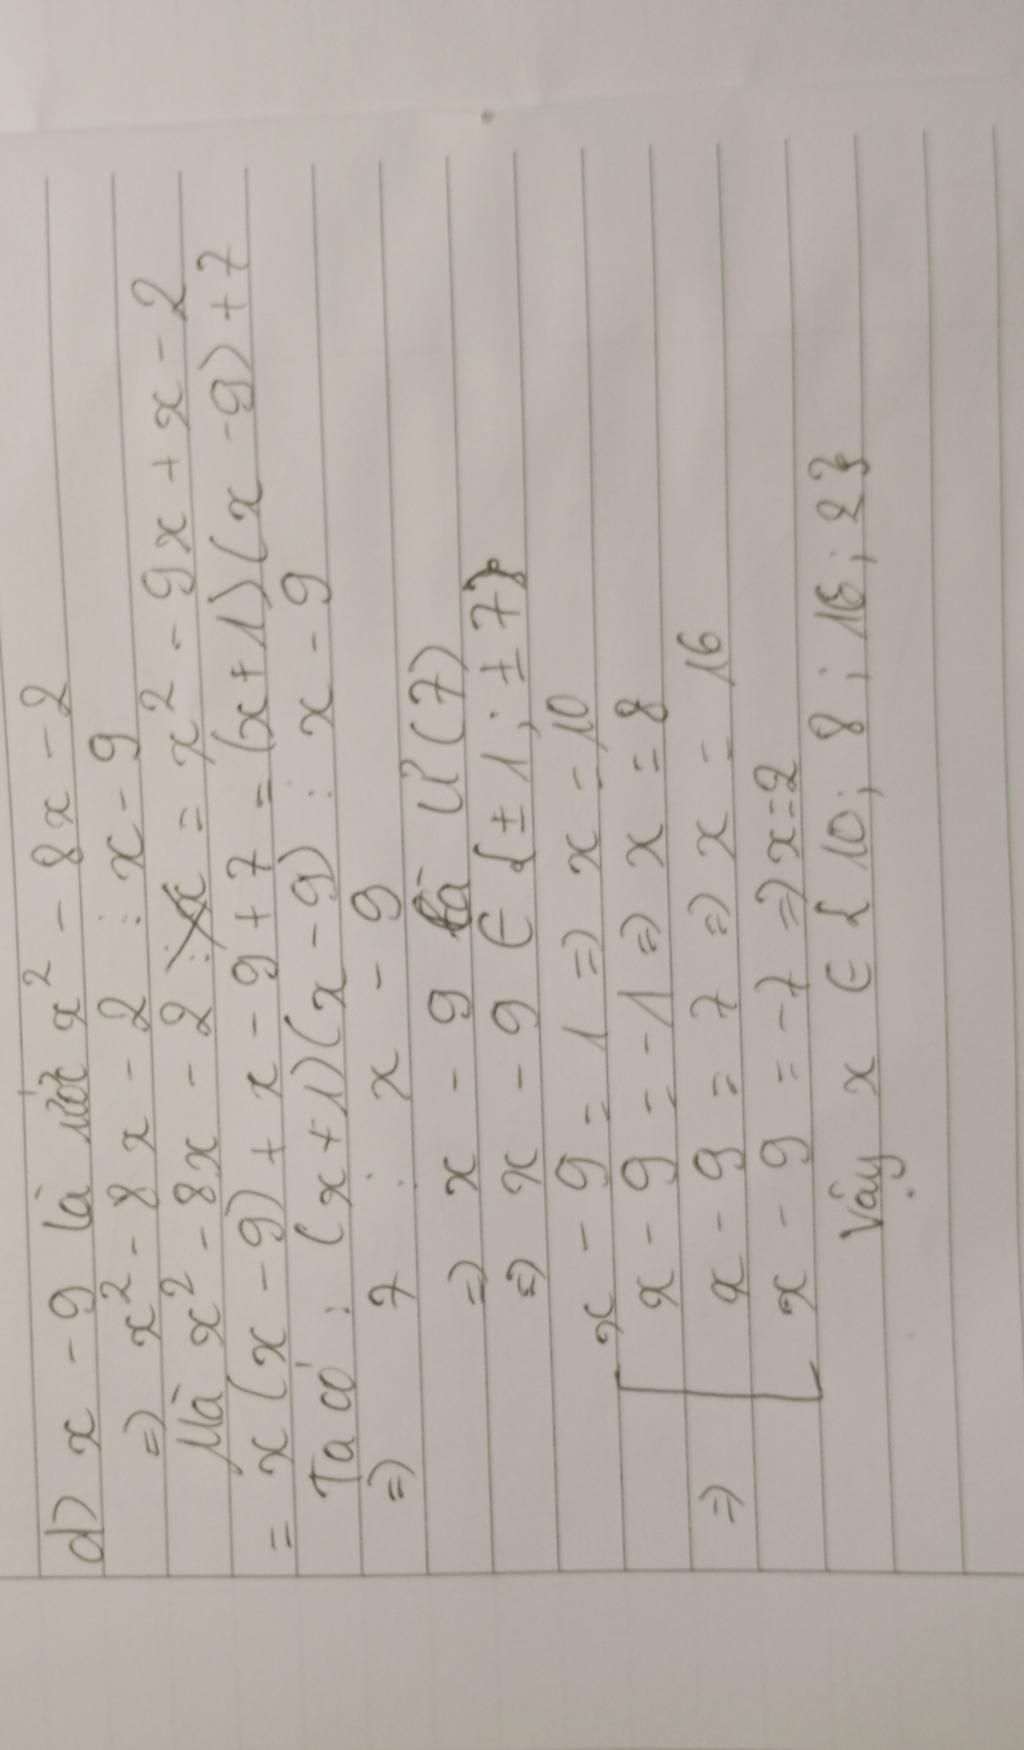 d) x - 9 là ước x² - 8x - 2
=> x² - 8x - 2 ⋮ x - 9
Mà x² - 8x - 2 = x² - 9x + x - 2
= x(x - 9) + x - 9 + 7 = (x+1)(x - 9) + 7
Ta có : (x+1)(x - 9) ⋮ x - 9
=> 7 ⋮ x - 9
=> x - 9 là Ư(7)
=> x - 9 ∈ {±1 ; ±7}
x - 9 = 1 => x = 10
x - 9 = -1 => x = 8
=> x - 9 = 7 => x = 16
x - 9 = -7 => x = 2
Vậy x ∈ {10; 8 ; 16 ; 2}